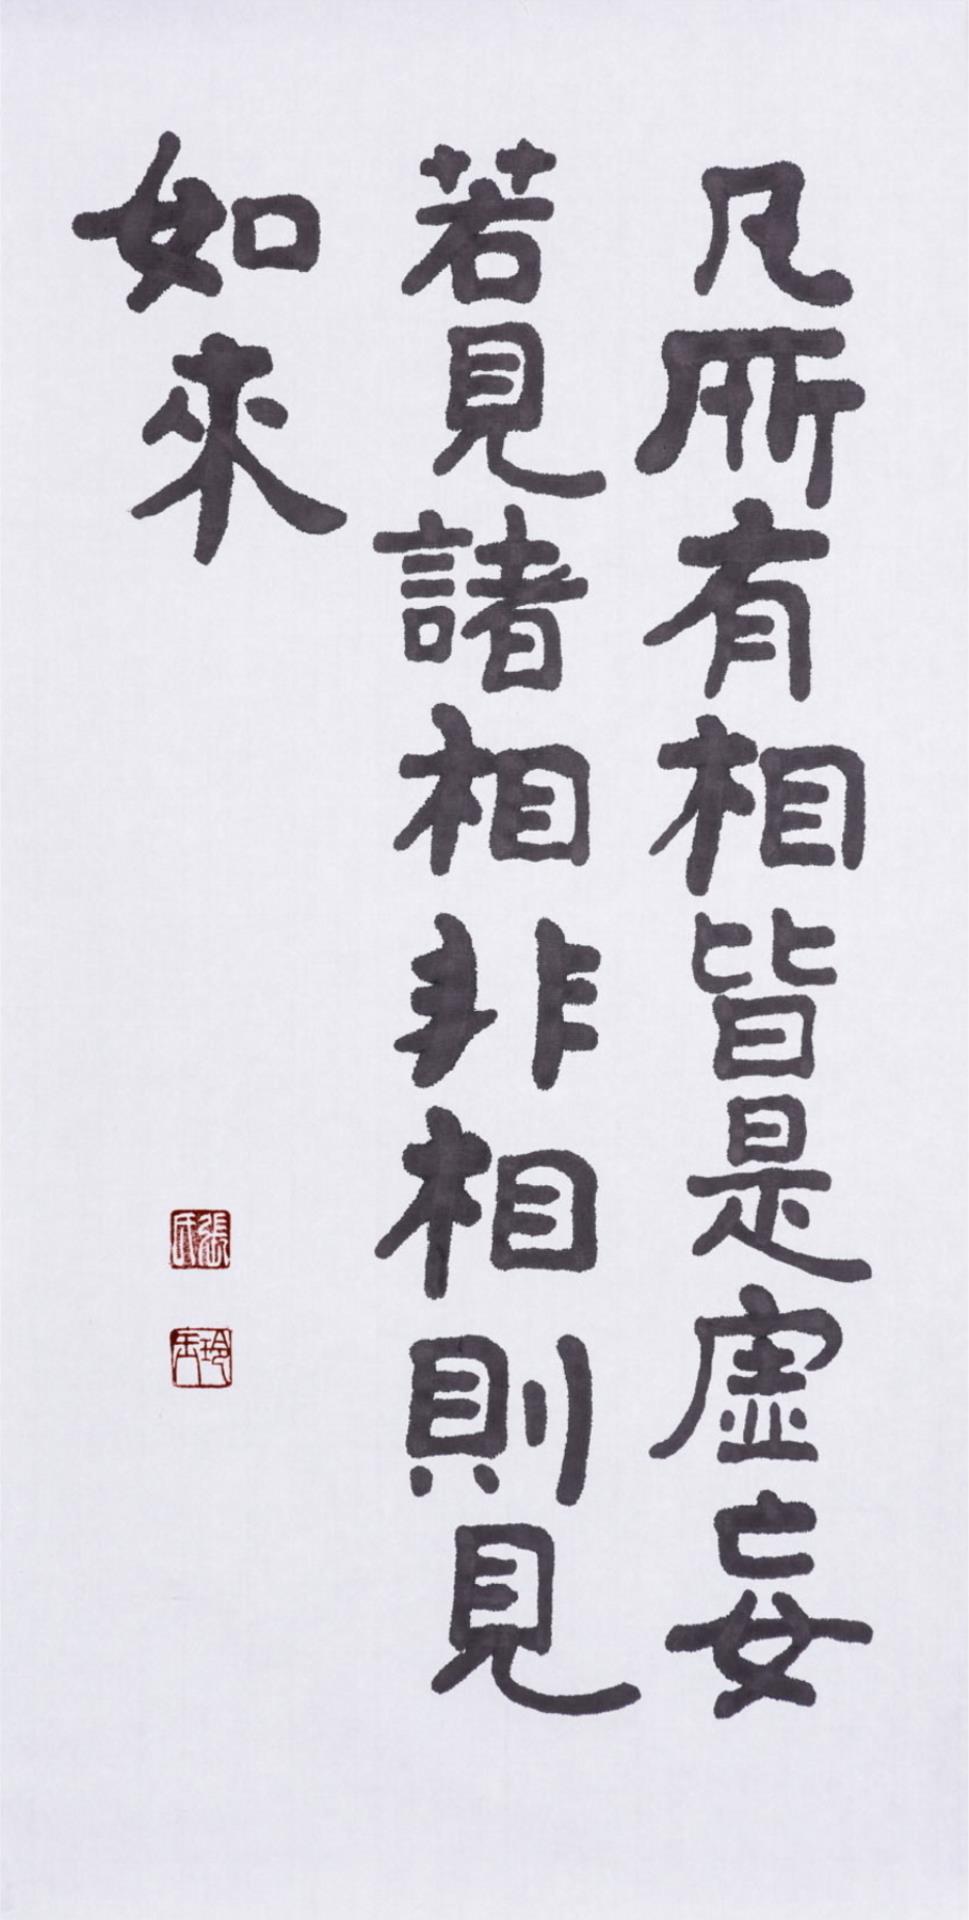 凡所有相皆是虛妄
若見諸相非相則見
如來
張氏